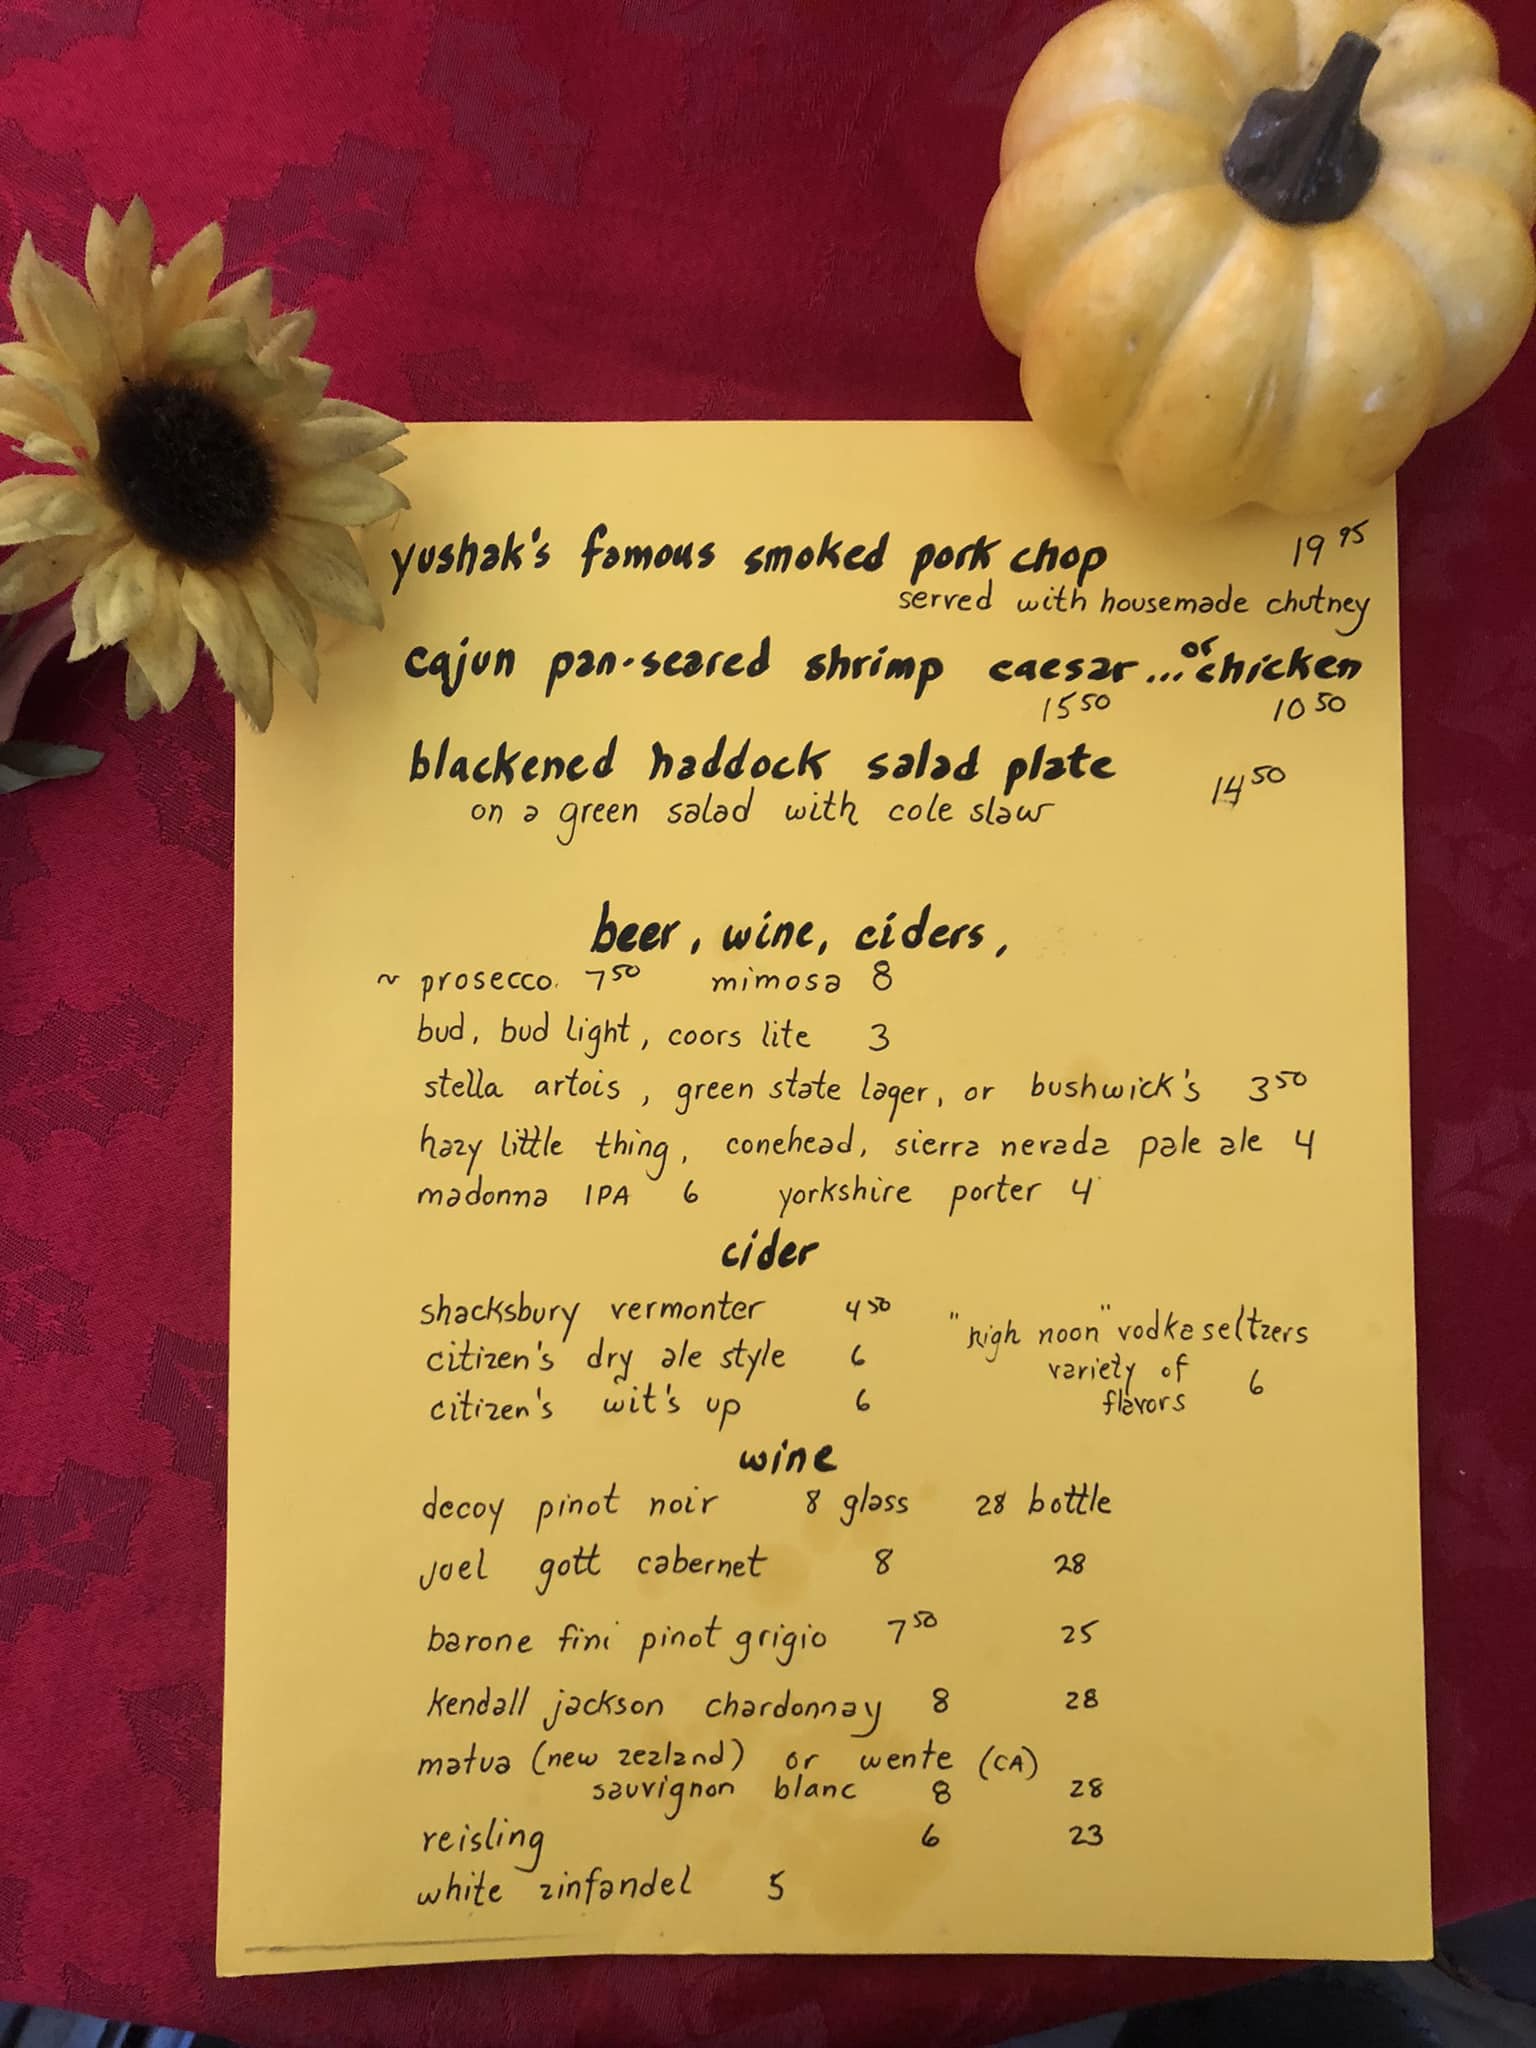 yushak's famous smoked pork chop 19 95
served with housemade chutney
cajun pan-seared shrimp caesar ... or chicken
15 50 10 50
blackened haddock salad plate 14 50
on a green salad with cole slaw
beer, wine, ciders,
~ prosecco. 7 50 mimosa 8
bud, bud light, coors lite 3
stella artois, green state lager, or bushwick's 3 50
hazy little thing, conehead, sierra nevada pale ale 4
madonna IPA 6 yorkshire porter 4
cider
shacksbury vermonter 4 50
citizen's dry ale style 6
citizen's wit's up 6
"high noon" vodka seltzers
variety of
flavors 6
wine
decoy pinot noir 8 glass 28 bottle
joel gott cabernet 8 28
barone fini pinot grigio 7 50 25
kendall jackson chardonnay 8 28
matua (new zealand) or wente (CA)
sauvignon blanc 8 28
reisling 6 23
white zinfandel 5